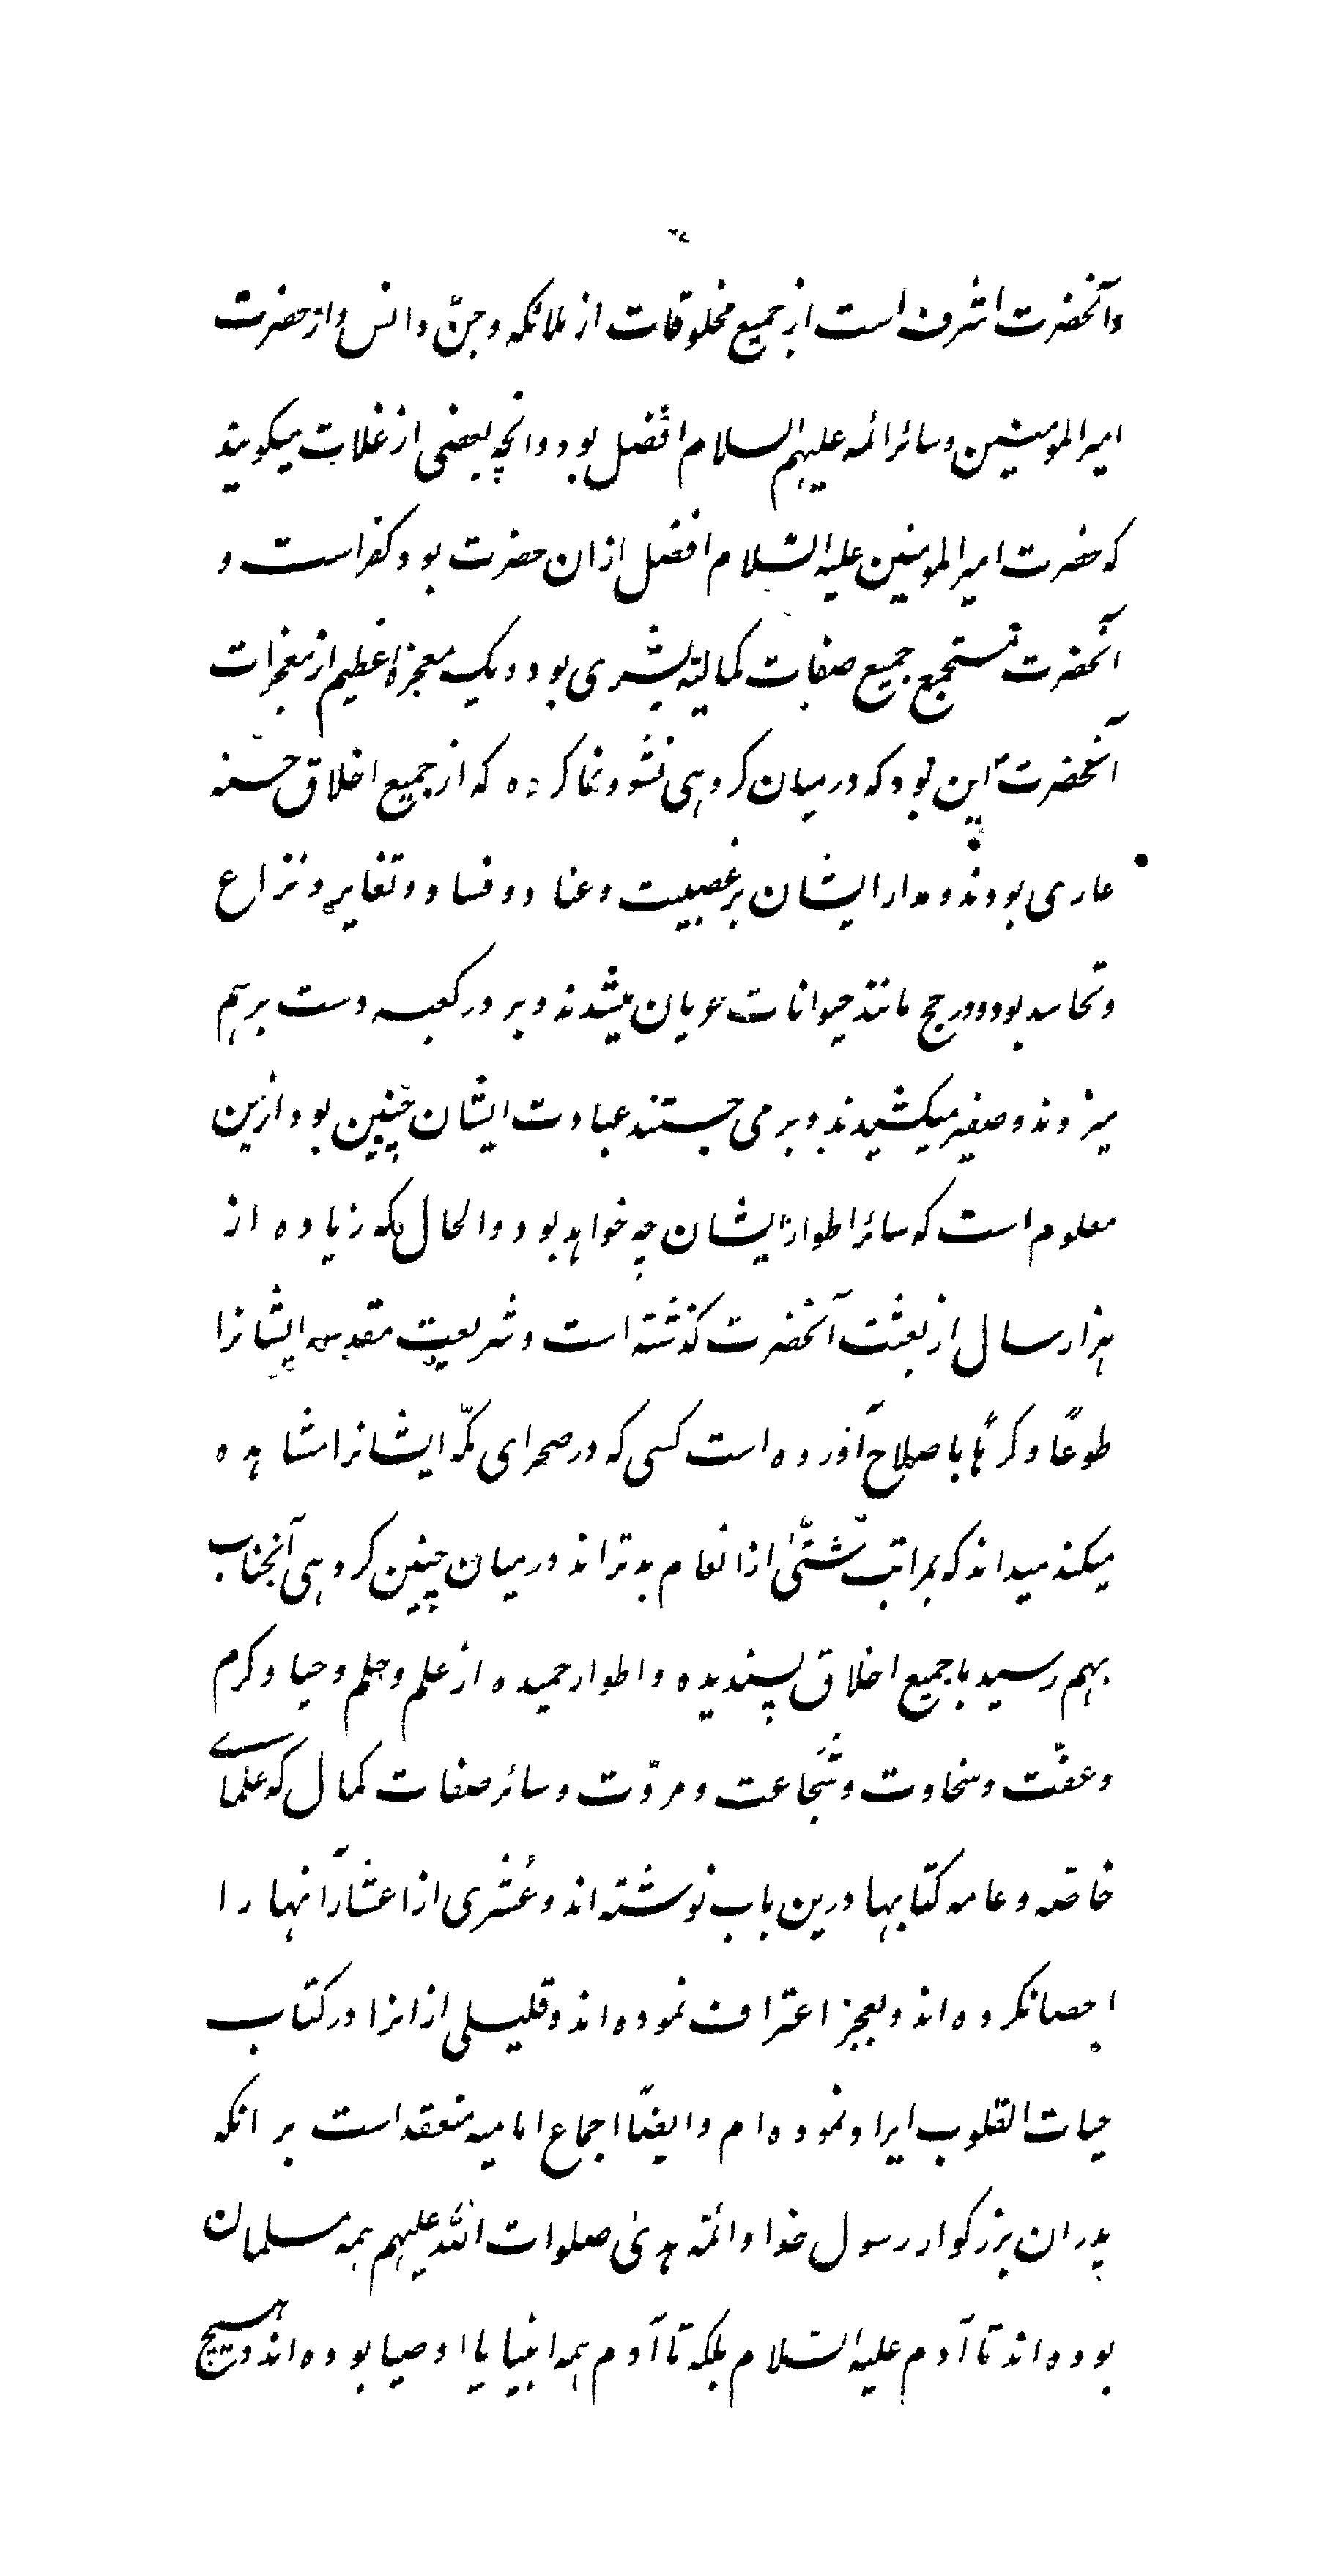 وآنحضرت اشرف است از جمیع مخلوقات از ملائکه و جنّ و انس و از حضرت
امیر المومنین و سائر ائمه علیهم السلام افضل بود و انچه بعضی از غلات میکویند
که حضرت امیر المومنین علیه السّلام افضل ازان حضرت بود کفر است و
آنحضرت مستجمع جمیع صفات کمالیّه بشری بود و یک معجزهٔ عظیم از معجزات
آنحضرت این بود که در میان کروهی نشو و نما کرده که از جمیع اخلاق حسنه
عاری بودند و مدار ایشان بر عصبیت و عناد و فساد و تغایر و نزاع
و تحاسد بود و در حج مانند حیوانات عریان میشدند و بر در کعبه دست بر هم
میزدند و صفیر میکشیدند و بر می جستند عبادت ایشان چنین بود ازین
معلوم است که سائر اطوار ایشان چه خواهد بود و الحال که زیاده از
هزار سال از بعثت آنحضرت کذشته است و شریعت مقدسه ایشانرا
طوعًا و کرهًا باصلاح آورده است کسی که در صحرای مکّه ایشانرا مشاهده
میکند میداند که بمراتب شتّیٰ از انعام بدتر اند در میان چنین کروهی آنجناب
بهم رسید با جمیع اخلاق پسندیده و اطوار حمیده از علم و حلم و حیا و کرم
و عفّت و سخاوت و شجاعت و مروّت و سائر صفات کمال که علمای
خاصّه و عامه کتابها درین باب نوشته اند و عُشری از اعشار آنها را
احصا نکرده اند و بعجز اعتراف نموده اند و قلیلی از انرا در کتاب
حیات القلوب ایراد نموده ام و ایضًا اجماع امامیه منعقد است بر انکه
پدران بزرکوار رسول خدا و ائمّه هدیٰ صلوات اللّه علیهم همه مسلمان
بوده اند تا آدم علیه السّلام بلکه تا آدم همه انبیا یا اوصیا بوده اند و هیچ